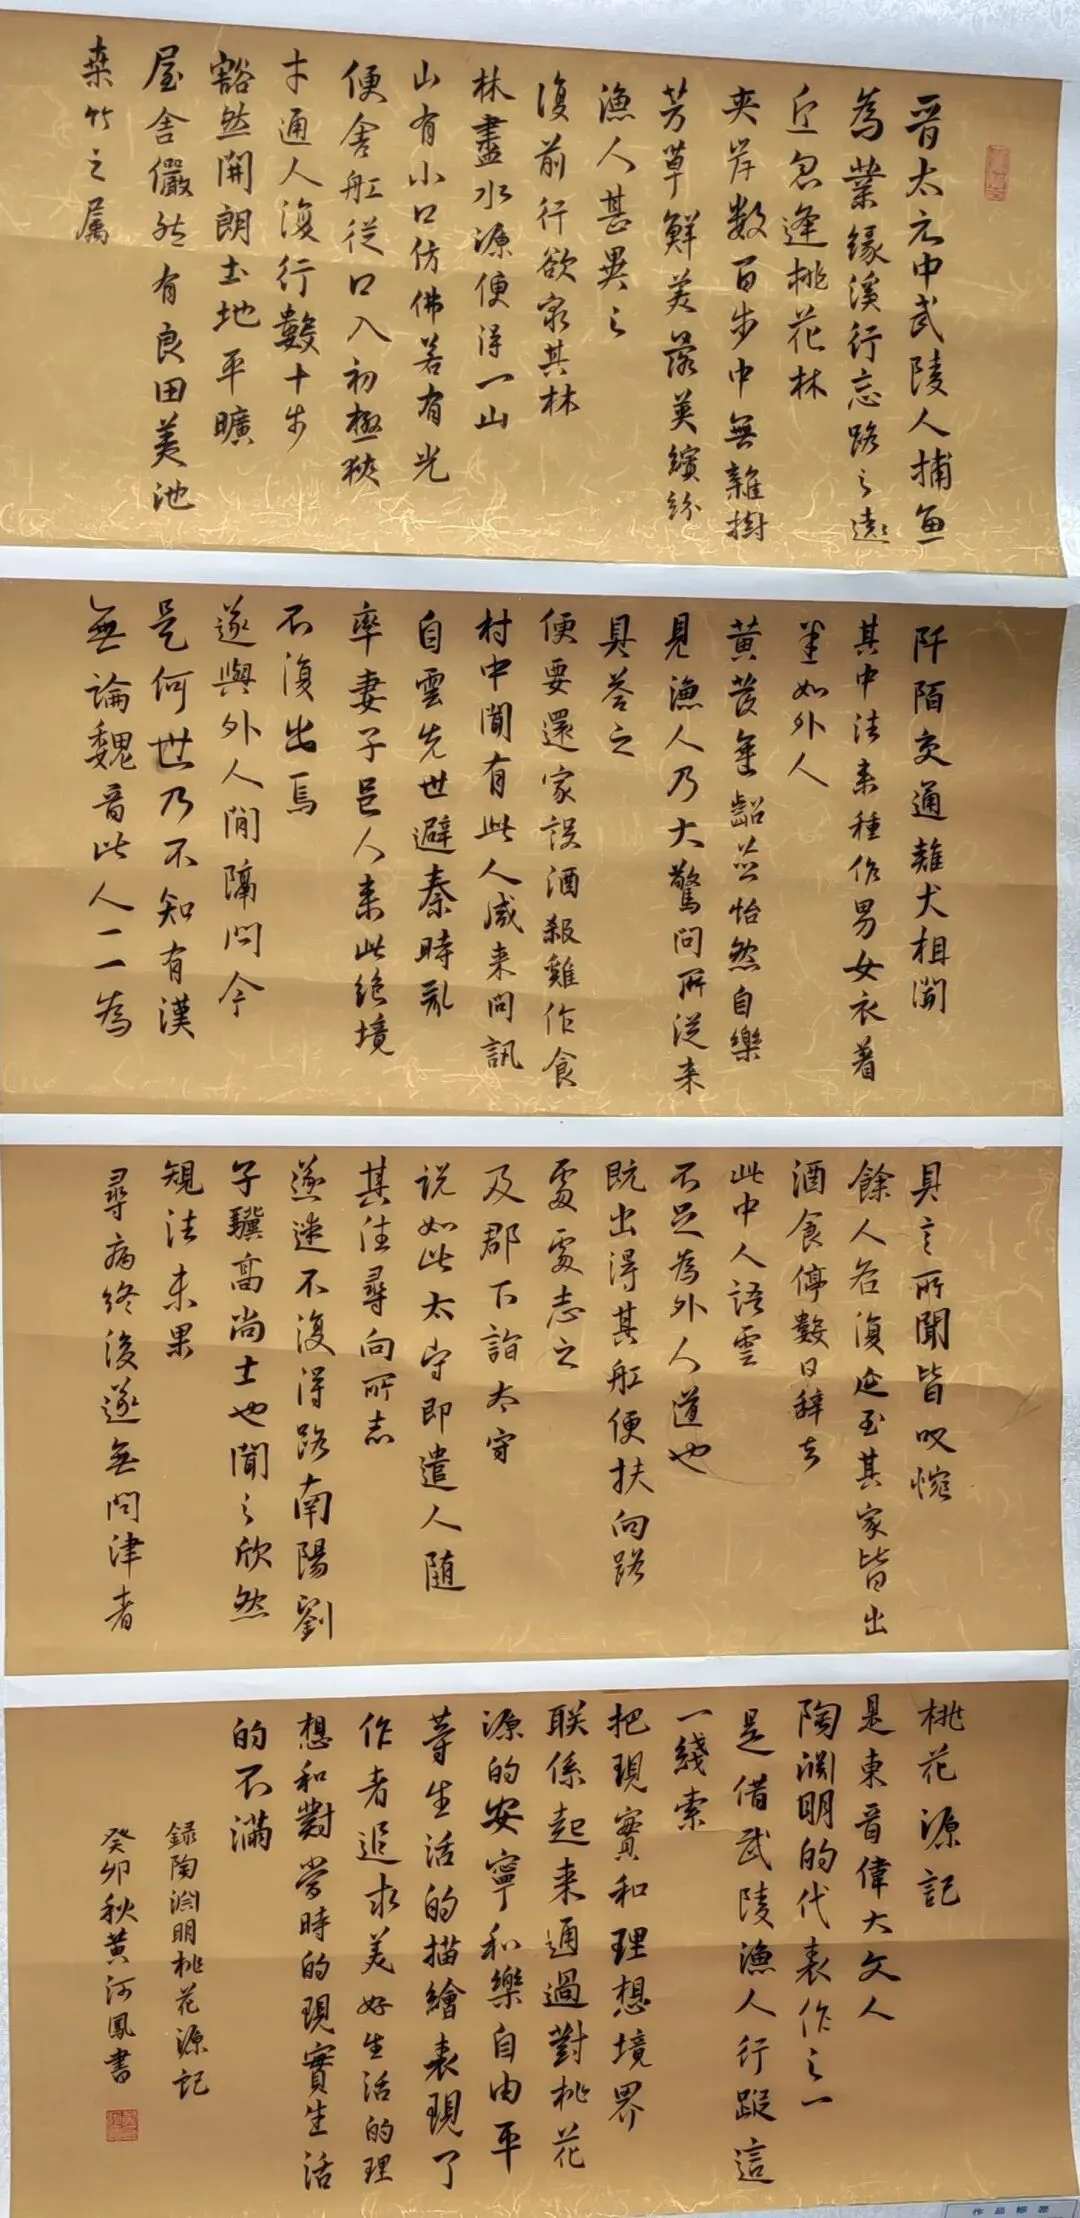 晋太元中武陵人捕鱼
為業缘溪行忘路之遠
近忽逢桃花林
夾岸数百步中無雜樹
芳草鮮美落英繽紛
漁人甚異之
復前行欲窮其林
林盡水源便得一山
山有小口仿佛若有光
便舍舡從口入初極狹
才通人復行數十步
豁然開朗土地平曠
屋舍儼然有良田美池
桑竹之属
阡陌交通雞犬相聞
其中往来種作男女衣着
並如外人
黄髮垂髫並怡然自樂
見漁人乃大驚問所從来
具答之
便要還家設酒殺雞作食
村中聞有此人咸来問訊
自雲先世避秦時亂
率妻子邑人来此絕境
不復出焉
遂與外人間隔問今
是何世乃不知有漢
無論魏晉此人一一為
具言所聞皆叹惋
餘人各復延至其家皆出
酒食停數日辭去
此中人語雲
不足為外人道也
既出得其舡便扶向路
處處志之
及郡下詣太守
説如此太守即遣人随
其往尋向所志
遂迷不復得路南陽劉
子驥高尚士也聞之欣然
規往未果
尋病終後遂無問津者
桃花源記
是東晋偉大文人
陶渊明的代表作之一
是借武陵漁人行蹤這
一綫索
把現實和理想境界
联係起来通過對桃花
源的安寧和樂自由平
等生活的描繪表現了
作者追求美好生活的理
想和對當時的現實生活
的不滿
録陶渊明桃花源記
癸卯秋黄河鳳書